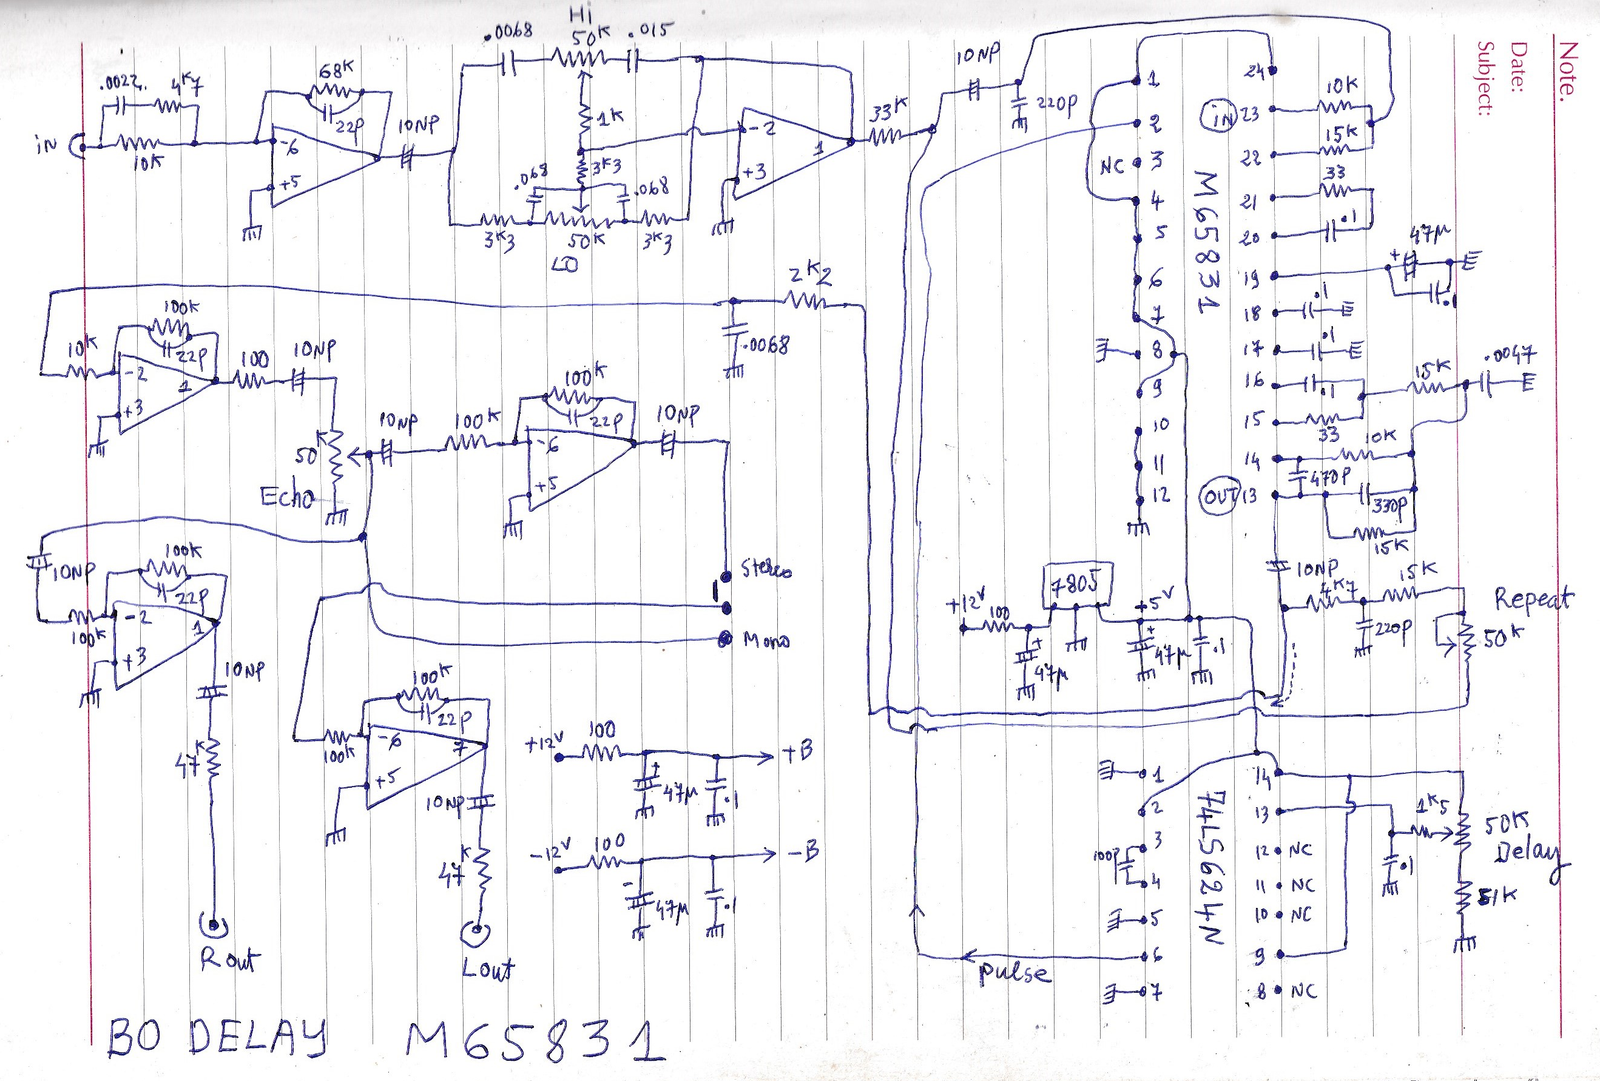 Note.
Date:
Subject:
Hi
.0068 50K .015
.0022 4K7
68K
22P
10NP
iN
10K
-6
+5
1K
3K3
.068 .068
3K3 50K 3K3
LO
-2
+3
1
33K
10NP
220P
1 24
2 iN 23
NC 3 22
4 21
5 20
6 19
7 18
8 17
9 16
10 15
11 14
12 OUT 13
M65831
10K
15K
33
.1
47µ
+
.1
.1
.1
.1
15K
.0047
33
10K
470P
330P
15K
2K2
.0068
100K
10K
22P
-2
+3
1
100
10NP
50K
Echo
10NP
100K
100K
22P
-6
+5
10NP
Stereo
Mono
10NP
100K
22P
100K
-2
+3
1
10NP
47K
Rout
100K
22P
100K
-6
+5
7
10NP
47K
Lout
+12V 100 +B
+
47µ .1
-12V 100 -B
-
47µ .1
7805
+12V 100 +5V
+
47µ
+
47µ .1
10NP
4K7 15K
220P
Repeat
50K
1 14
2 13
3 12 NC
4 11 NC
5 10 NC
6 9
7 8 NC
100P
74LS624N
1K5
.1
50K
Delay
51K
Pulse
BO DELAY M65831